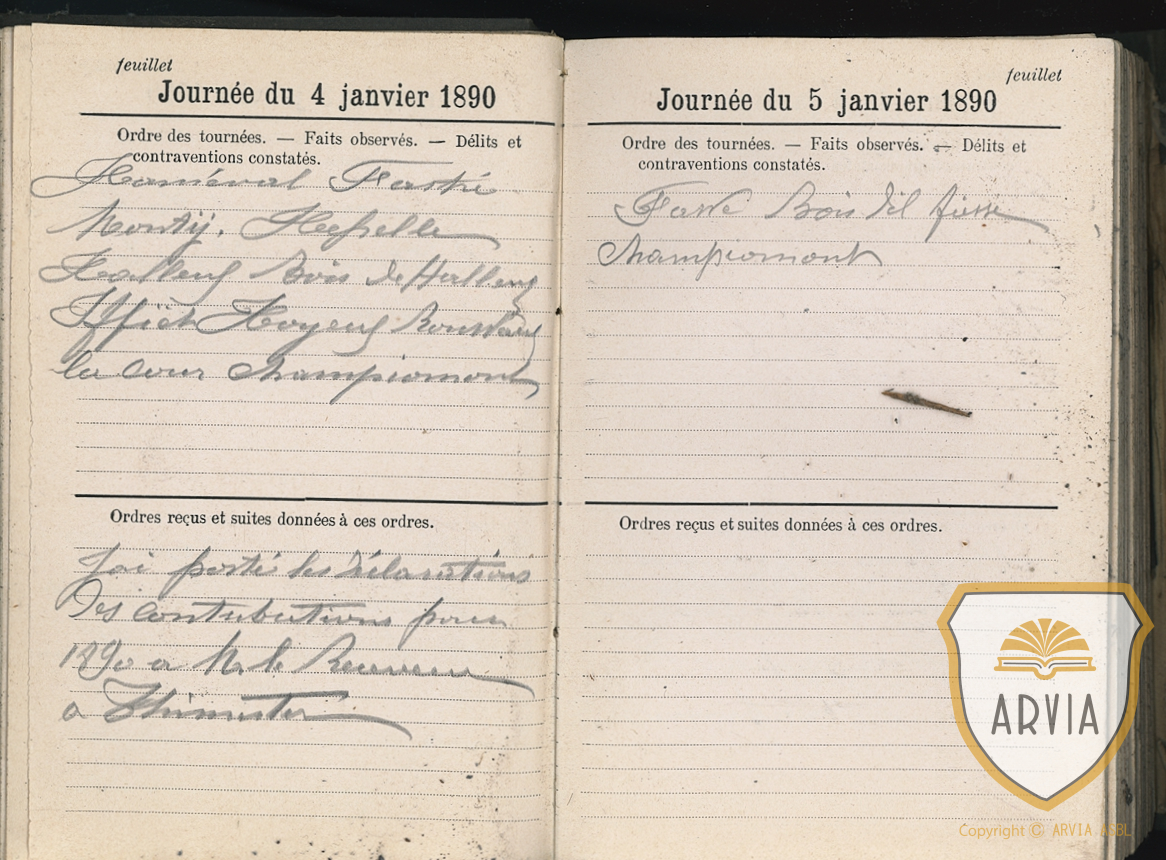 feuillet
Journée du 4 janvier 1890
Ordre des tournées. — Faits observés. — Délits et
contraventions constatés.
Monty.
Bois de Halleux
la Cour Championmont
Ordres reçus et suites données à ces ordres.
Jai porté les déclarations
Des contributions pour
1890 a Mr le Receveur
a Thimister
feuillet
Journée du 5 janvier 1890
Ordre des tournées. — Faits observés. — Délits et
contraventions constatés.
Bois Del fiesse
Championmont
Ordres reçus et suites données à ces ordres.
ARVIA
Copyright © ARVIA ASBL